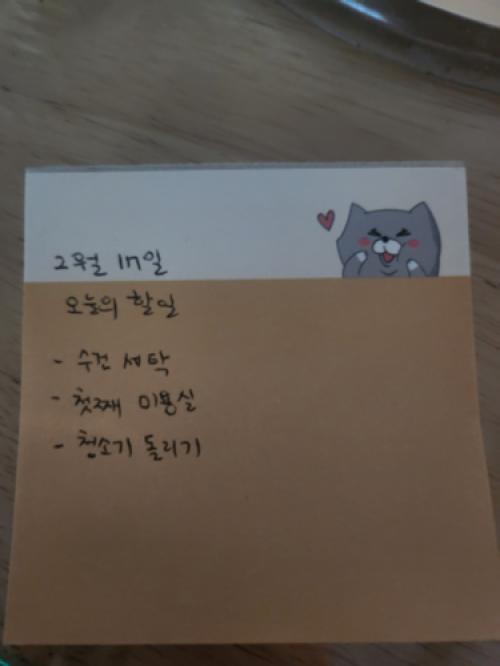 2월 17일
오늘의 할일
- 수건 세탁
- 첫째 미용실
- 청소기 돌리기